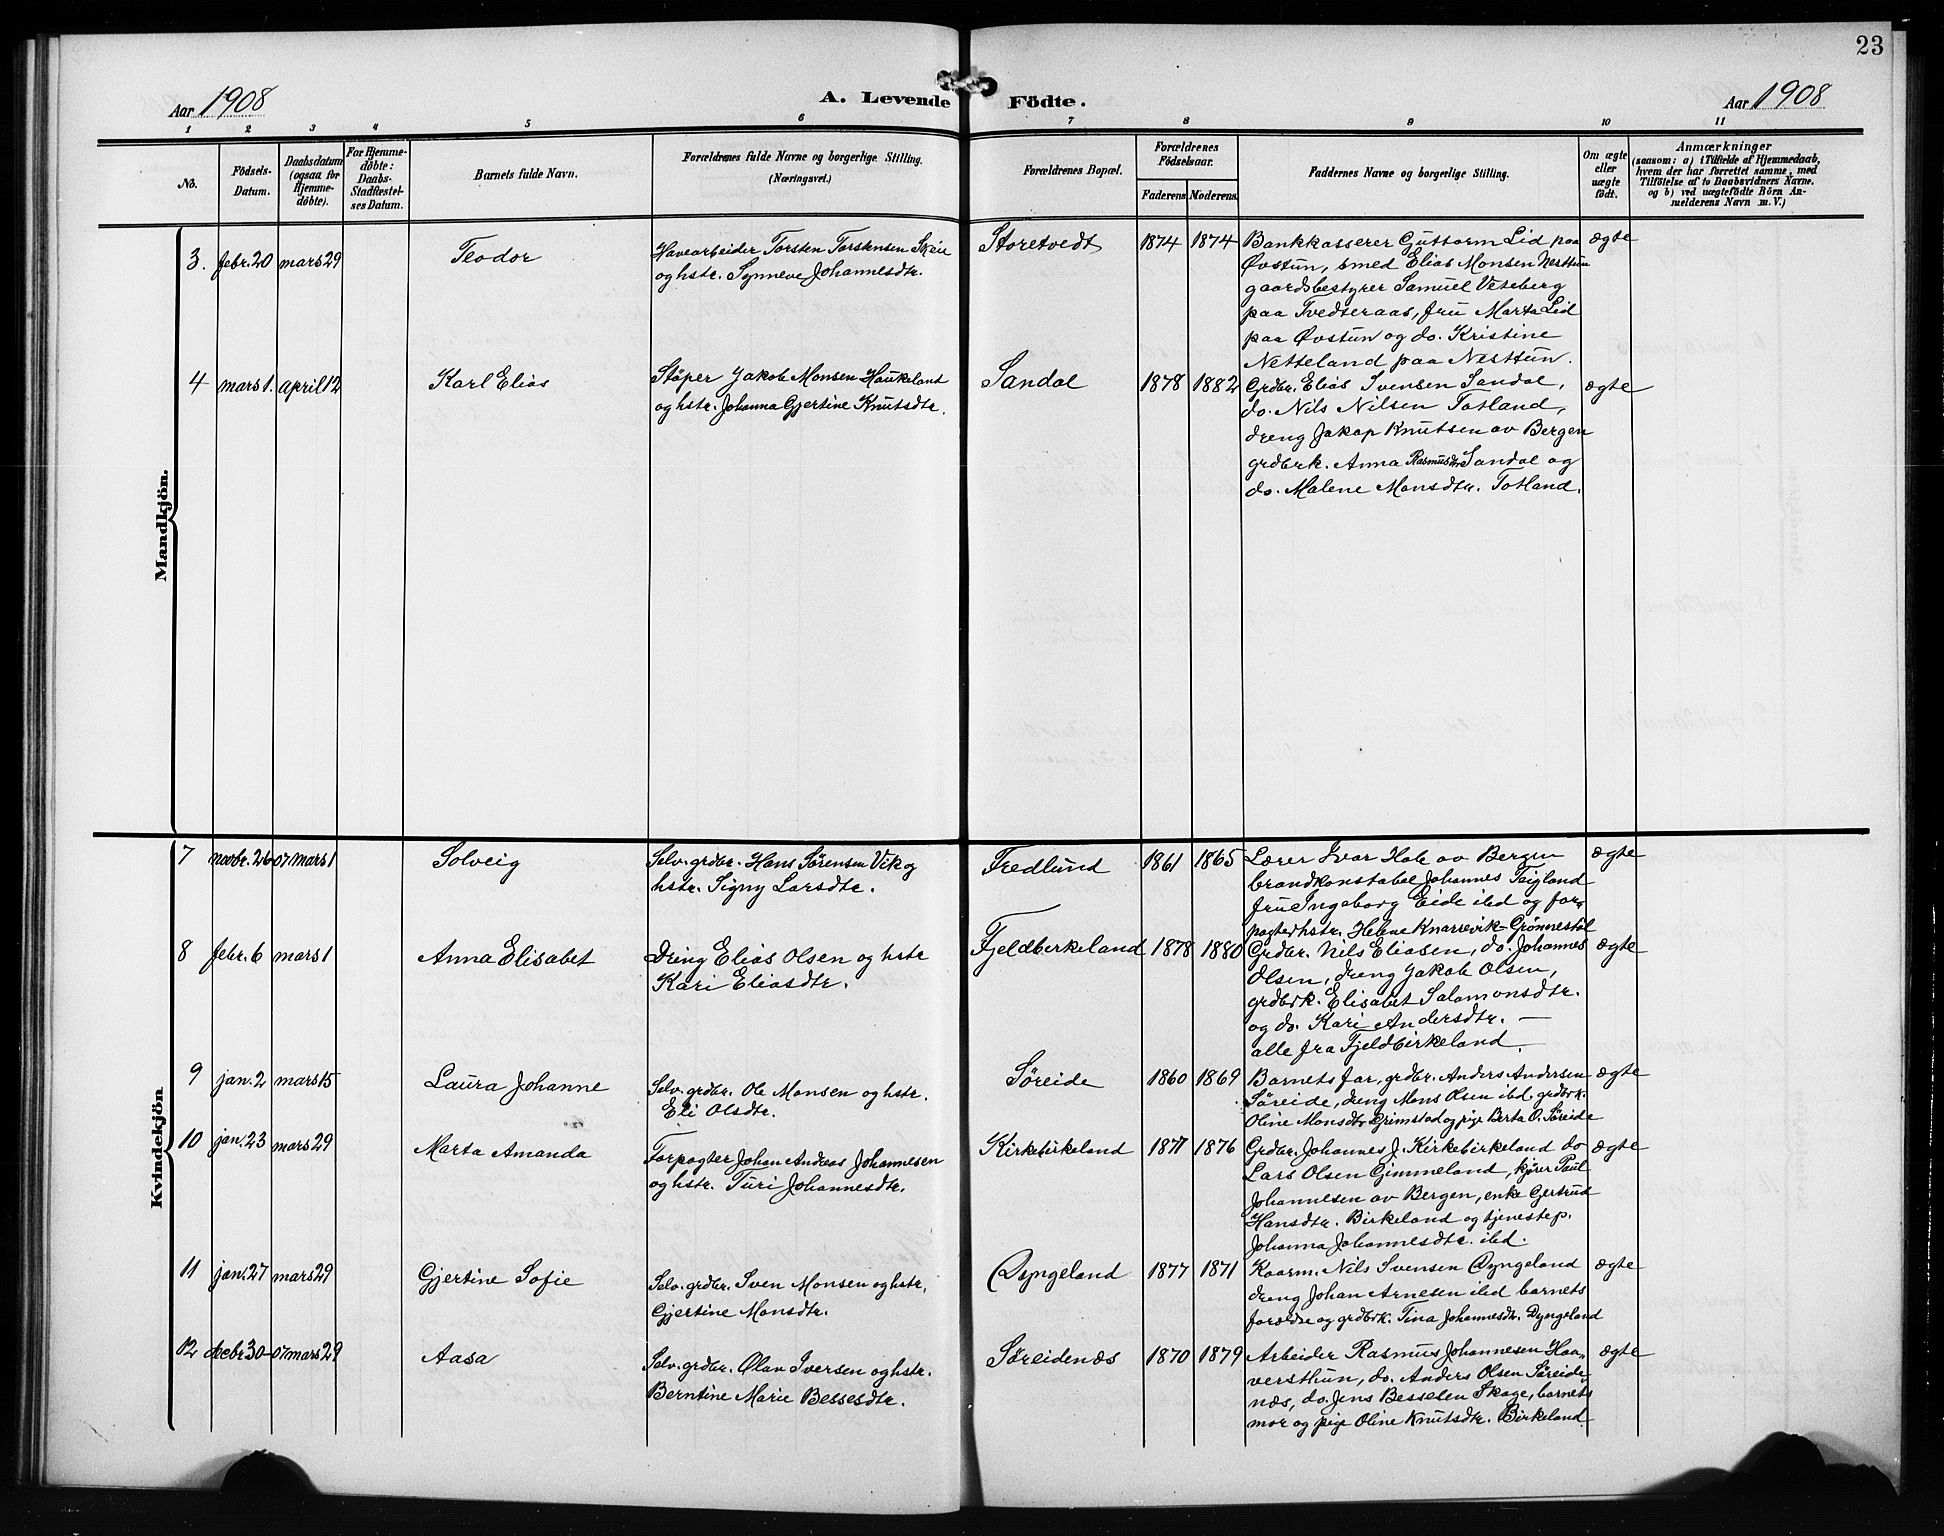 23
Aar 1908
A. Levende Födte.
Aar 1908
1 2 3 4 5 6 7 8 9 10 11
No.
Födsels-
Datum.
Daabsdatum
(ogsaa for
Hjemme-
døbte).
For Hjemme-
døbte:
Daabs-
Stadfæstel-
ses Datum.
Barnets fulde Navn.
Forældrenes fulde Navne og borgerlige Stilling.
(Næringsvei.)
Forældrenes Bopæl.
Forældrenes
Födselsaar.
Faderens. Moderens.
Faddernes Navne og borgerlige Stilling.
Om ægte
eller
uægte
födt.
Anmærkninger
(saasom: a) i Tilfælde af Hjemmedaab,
hvem der har forrettet samme, med
Tilföielse af to Daabsvidners Navne.
og b) ved uægtefödte Börn An-
melderens Navn m. V.)
Mandkjön.
3. febr. 20 mars 29
Teodor
Havearbeider Torsten Torstensen Skeie
og hstr. Synneve Johannesdtr.
Storetvedt
1874 1874
Bankkasserer Guttorm Lid paa
Øvstun, smed Elias Monsen Nesttun
gaardsbestyrer Samuel Veteberg
paa Tvedteraas, fru Marta Lid
paa Øvstun og do. Kristine
Netteland paa Nesttun.
ægte
4 mars 1. april 12
Karl Elias
Støper Jakob Monsen Haukeland
og hstr. Johanna Gjertine Knutsdtr.
Sandal
1878 1882
Grdbr. Elias Svensen Sandal,
do. Nils Nilsen Totland,
dreng Jakop Knutsen av Bergen
grdbrk. Anna Rasmusdtr Sandal og
do. Malene Monsdtr. Totland.
ægte
Kvindekjön
7 novbr. 26-07 mars 1
Solveig
Selv. grdbr. Hans Sørensen Vik og
hstr. Signy Larsdtr.
Fredlund
1861 1865
Lærer Ivar Hole av Bergen
brandkonstabel Johannes Teigland
fru Ingeborg Eide ibd og for-
pagterhstr. Helene Knarrevik-Grønnestøl
ægte
8 febr. 6 mars 1
Anna Elisabet
Dreng Elias Olsen og hstr
Kari Eliasdtr.
Fjeldbirkeland
1878 1880
Grdbr. Nils Eliasen, do. Johannes
Olsen, dreng Jakob Olsen,
grdbrk. Elisabet Salomonsdtr.
og do. Kari Andersdtr. —
alle fra Fjeldbirkeland.
ægte
9 jan. 2 mars 15
Laura Johanne
Selv. grdbr. Ole Monsen og hstr.
Eli Olsdtr.
Søreide
1860 1869
Barnets far, grdbr. Anders Andersen
Søreide, dreng Mons Olsen ibd, grdbrk.
Oline Monsdtr Grimstad og pige Berta O. Søreide
ægte
10 jan. 23 mars 29
Marta Amanda
Forpagter Johan Andreas Johannesen
og hstr. Turi Johannesdtr.
Kirkebirkeland
1877 1876
Grdbr. Johannes J. Kirkebirkeland do
Lars Olsen Gimmeland, kjører Paul
Johannesen av Bergen, enke Gertrud
Hansdtr. Birkeland og tjenestep.
Johanna Johannesdtr. ibd.
ægte
11 jan. 27 mars 29
Gjertine Sofie
Selv. grdbr. Sven Monsen og hstr.
Gjertine Monsdtr.
Dyngeland
1877 1871
Kaarm. Nils Svensen Dyngeland
dreng Johan Arnesen ibd barnets
forældre og grdbrk. Tina Johannesdtr. Dyngeland
ægte
12 decbr 30-07 mars 29
Aasa
Selv. grdbr. Olav Iversen og hstr.
Berntine Marie Bessesdtr.
Søreidenæs
1870 1879
Arbeider Rasmus Johannesen Haa-
versthun, do. Anders Olsen Søreide-
næs, do. Jens Bessesen Skage, barnets
mor og pige Oline Knutsdtr. Birkeland.
ægte